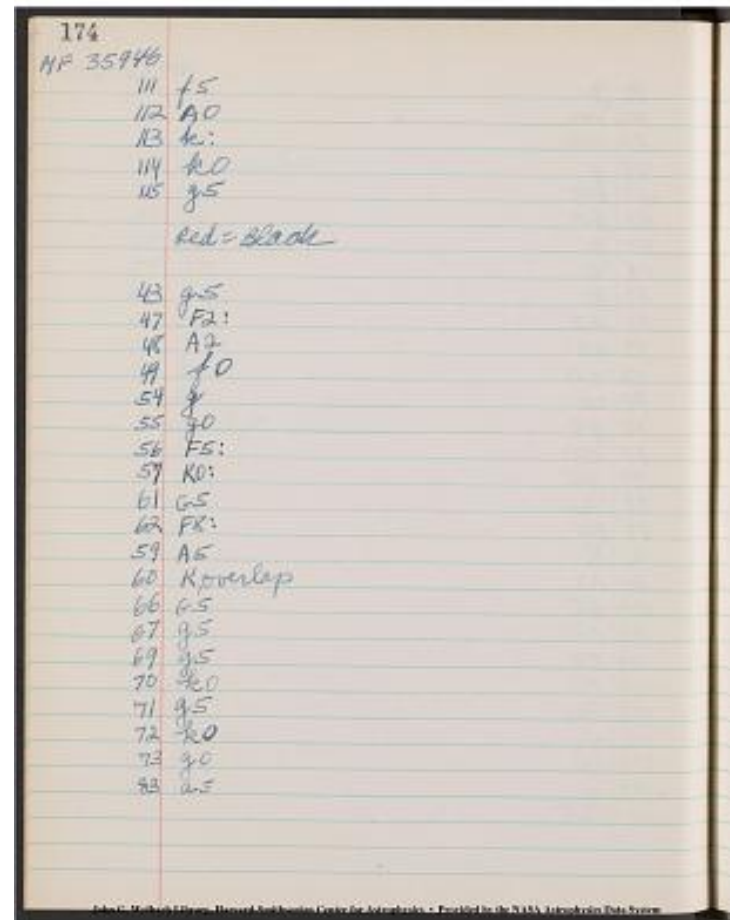 174
MF 35946
111 f5
112 A0
113 k:
114 k0
115 g5
Red = Black
43 g5
47 F2:
48 A2
49 f0
54 g
55 g0
56 F5:
57 K0:
61 G5
62 F8:
59 A5
60 K overlap
66 G5
67 g5
69 g5
70 k0
71 g5
72 k0
73 g0
83 a5
John G. Wolbach Library, Harvard-Smithsonian Center for Astrophysics • Provided by the NASA Astrophysics Data System